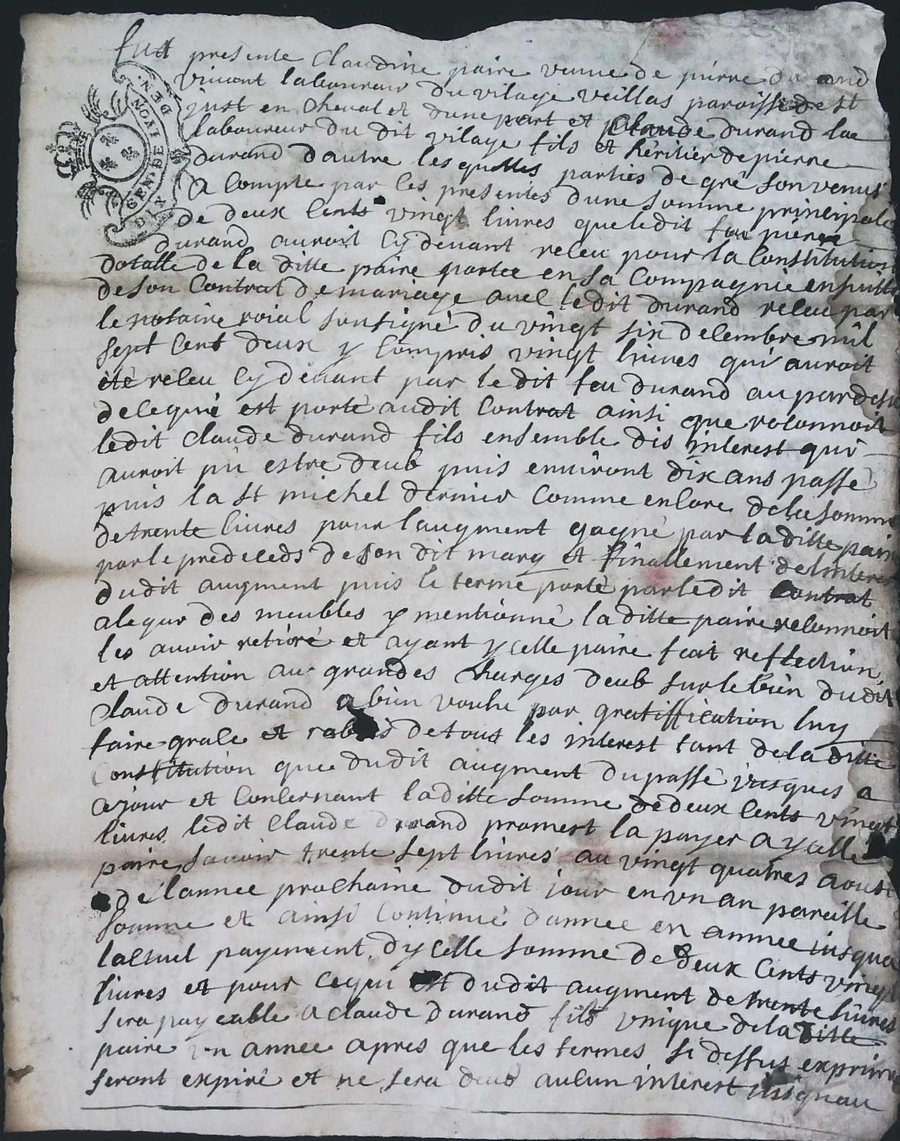 fut presente Claudine paire veuve de pierre durand
vivant laboureur du vilage veillas paroisse de st
just en Chevalet d'une part et Claude durand la
laboureur du dit vilage fils et héritier de pierre
durand d'autre lesquelles parties de gré son venus
A Compte par les presentes d'une somme principale
de deux Cents vingt livres que ledit feu pierre
durand auroit cy devant receu pour la Constitution
dotalle de la ditte paire portée en sa Compagnie ensuitte
de son Contrat de mariage avec le dit durand receu par
le notaire roial sousigné du vingt six decembre mil
sept cent deux y compris vingt livres qui auroit
été receu cy devant par le dit feu durand au par dessu
de ce qui est porté audit Contrat ainsi que reconnoit
ledit Claude durand fils ensemble dis interest qui
auroit pû estre deub puis environt dix ans passé
puis la st michel dernier comme encore de la somme
de trente livres pour laugment gagné par la ditte paire
par le predeceds de son dit mary et finallement de linterest
dudit augment puis le terme porté par ledit Contrat
alequr des meubles y mentionné la ditte paire reconnoit
les avoir retiré et ayant ycelle paire fait reflection,
et attention au grandes Charges deub sur le bien du dit
Claude durand a bien voulu par gratiffication luy
faire grace et rabais de tous les interest tant de la ditte
Constitution que dudit augment du passé jusques a
cejour et Concernant la ditte somme de deux Cents vingt
livres ledit Claude durand promest la payer a ycelle
paire savoir trente sept livres au vingt quatres aoust
de lannee prochaine dudit jour en un an pareille
somme et ainsi Continué dannee en annee jusqua
lactuel payement dycelle somme de deux Cents vingt
livres et pour cequi est dudit augment de trente livres
sera payeable a Claude Durand fils unique de la ditte
paire un annee apres que les termes si dessus exprimé
seront expiré et ne sera deub aulun interest jusquau
DEN.
GEN. DE LYON
DIX